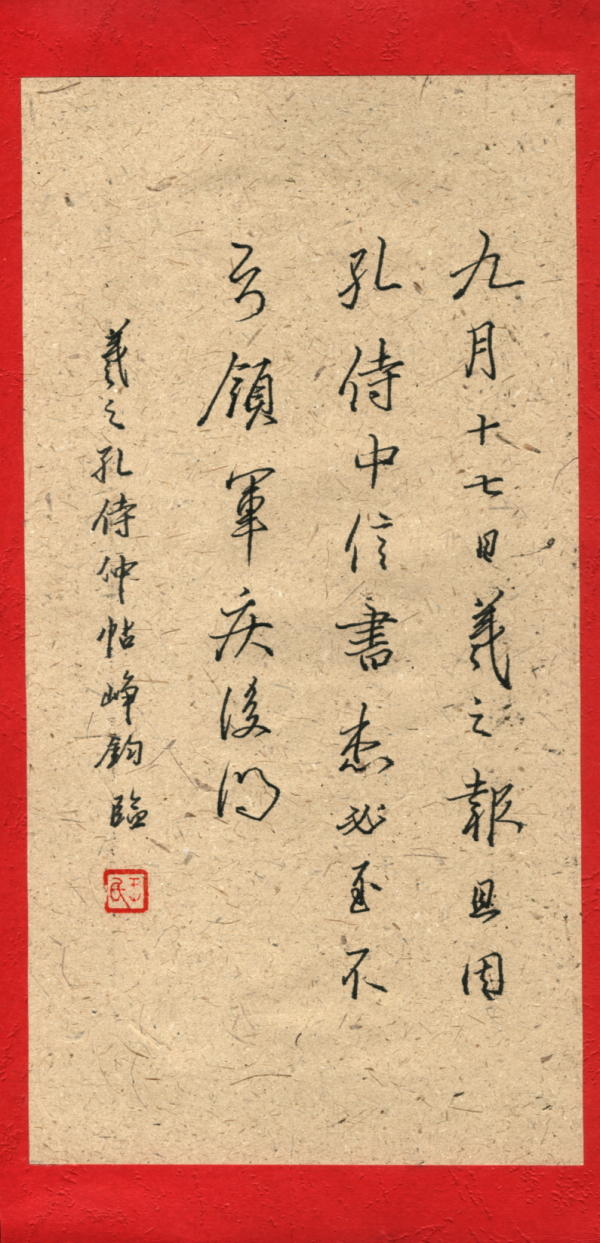 九月十七日羲之報且因
孔侍中信書想必至不
知領軍疾後問
羲之孔侍仲帖峥鈞臨